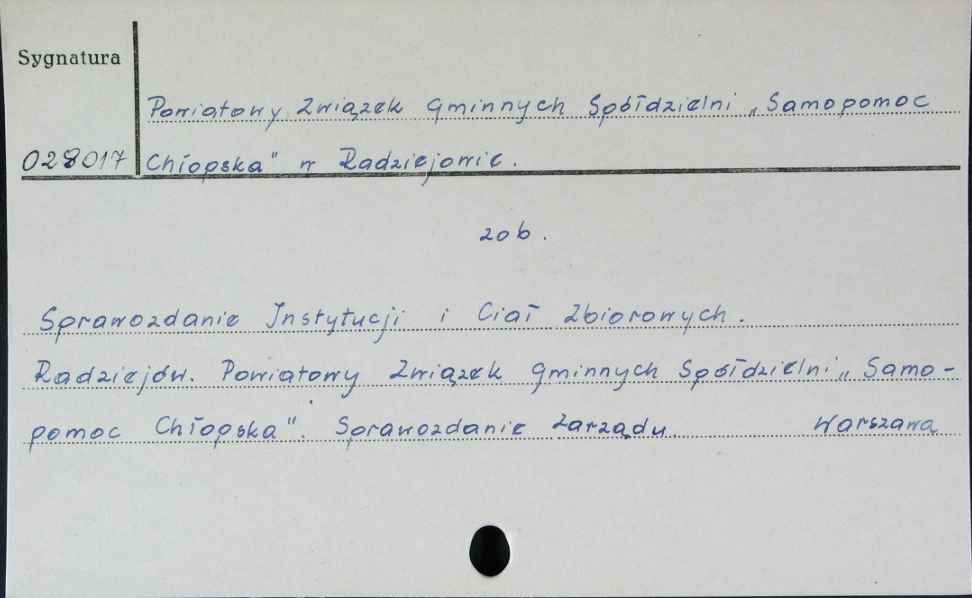 Sygnatura
Powiatowy Związek Gminnych Spółdzielni „Samopomoc
028017 Chłopska" w Radziejowie.
zob.
Sprawozdanie Instytucji i Ciał Zbiorowych.
Radziejów. Powiatowy Związek Gminnych Spółdzielni „Samo-
pomoc Chłopska". Sprawozdanie Zarządu. Warszawa